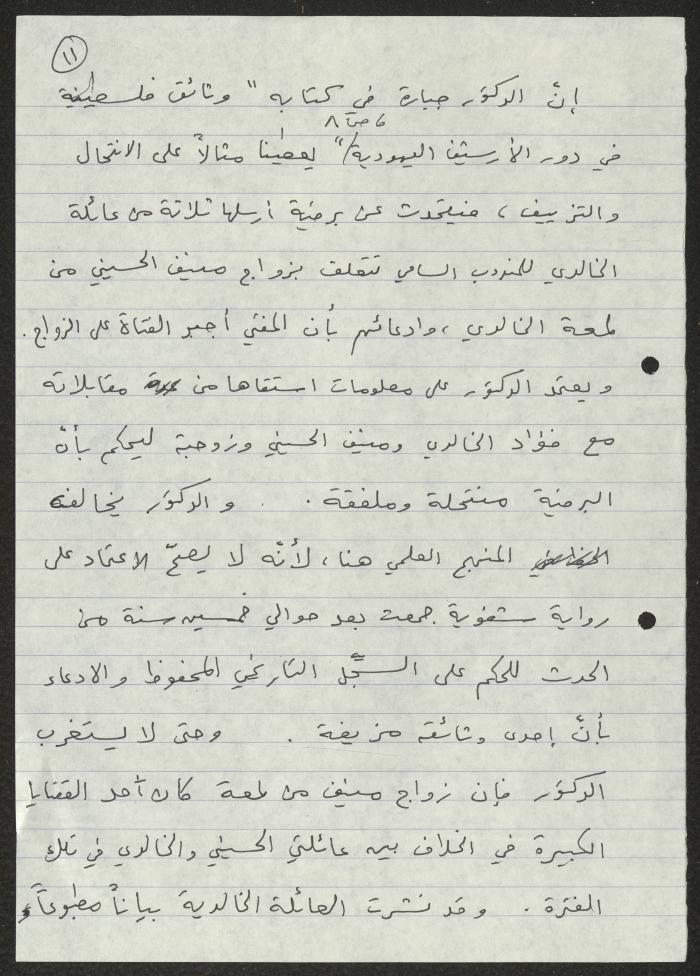 ١١
إنّ الدكتور جبارة في كتابه " وثائق فلسطينية
، ص ٨
في دور الأرشيف اليهودية" يعطينا مثالاً على الانتحال
والتزييف، فيتحدث عن برقية أرسلها ثلاثة من عائلة
الخالدي للمندوب السامي تتعلق بزواج منيف الحسيني من
لمعة الخالدي، وادعائهم بأن المفتي أجبر الفتاة على الزواج.
ويعتمد الدكتور على معلومات استقاها من مقابلاته
مع فؤاد الخالدي ومنيف الحسيني وزوجته ليحكم بأنّ
البرقية منتحلة وملفقة . والدكتور يخالف
المنهج العلمي هنا، لأنّه لا يصحّ الاعتماد على
رواية شفوية جمعت بعد حوالي خمسين سنة من
الحدث للحكم على السجّل التاريخي المحفوظ والادعاء
بأنّ إحدى وثائقه مزيفة . وحتى لا يستغرب
الدكتور فإن زواج منيف من لمعة كان أحد القضايا
الكبيرة في الخلاف بين عائلتي الحسيني والخالدي في تلك
الفترة . وقد نشرت العائلة الخالدية بياناً مطبوعاً،